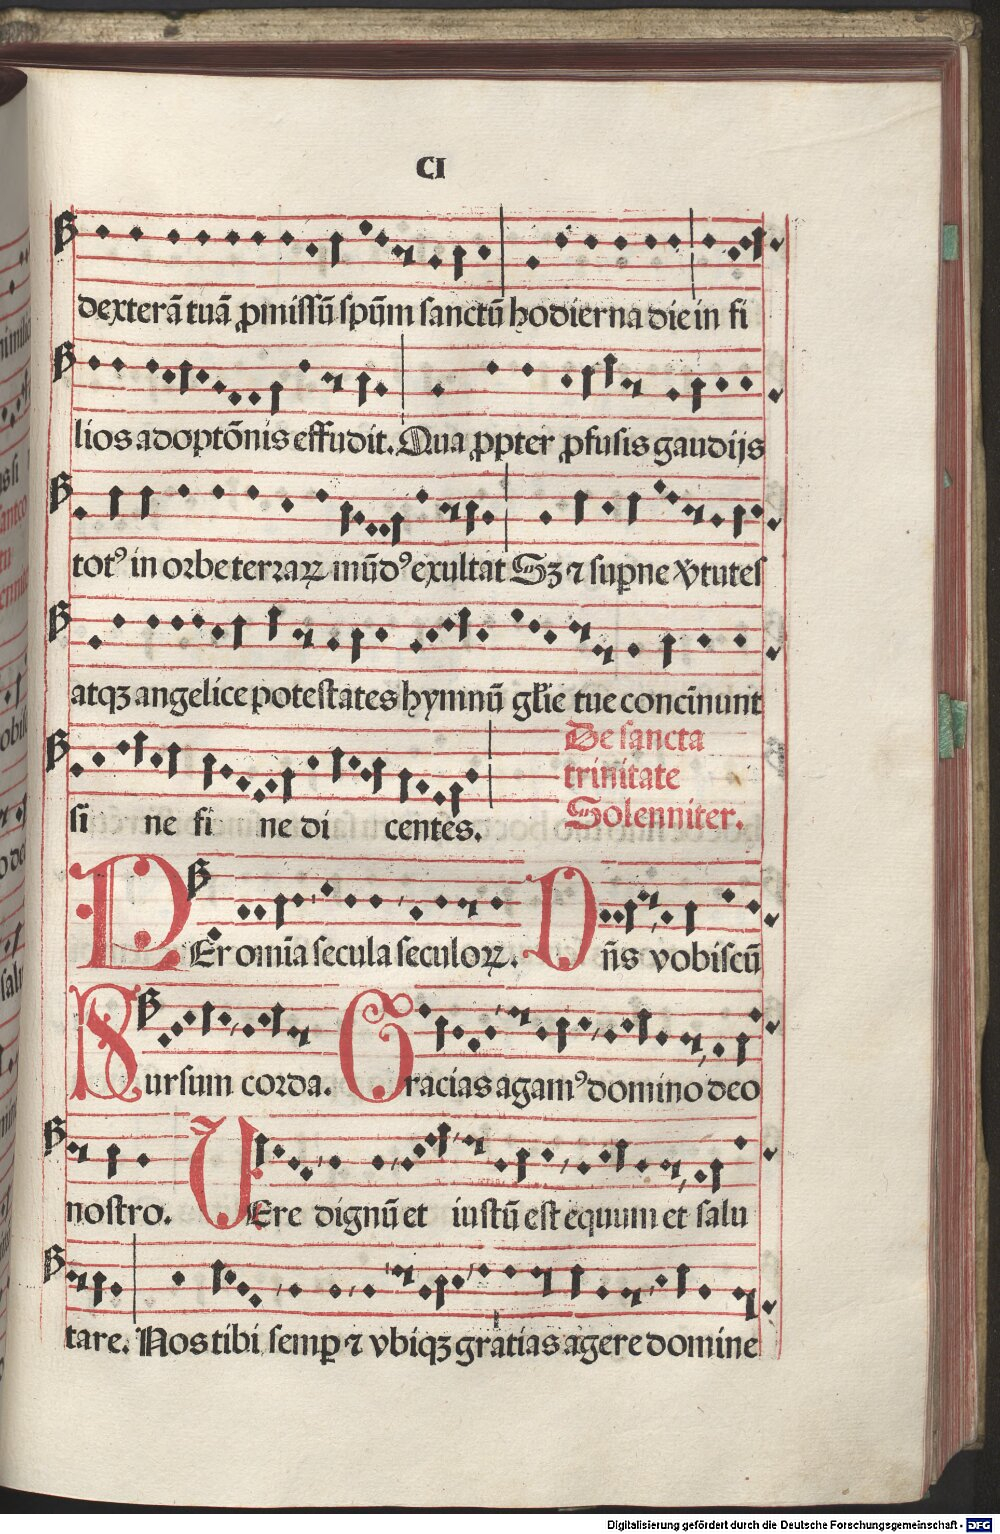 CI
dexterā tuā ꝓmissū spūm sanctū hodierna die in fi
lios adoptōnis effudit. Qua ꝓpter ꝓfusis gaudijs
totꝰ in orbe terraꝝ mūdꝰ exultat Sꝫ ⁊ suꝑne v̓tutes
atqꝫ angelice potestates hymnū gƚie tue concīnunt
De sancta
trinitate
si ne fi ne di centes. Solenniter.
PEr om̄ia secula seculoꝝ. Dn̄s vobiscū
Sursum corda. Gracias agamꝰ domino deo
nostro. VEre dignū et iustū est equum et salu
tare. Nos tibi semꝑ ⁊ vbiqꝫ gratias agere domine
Digitalisierung gefördert durch die Deutsche Forschungsgemeinschaft - DFG